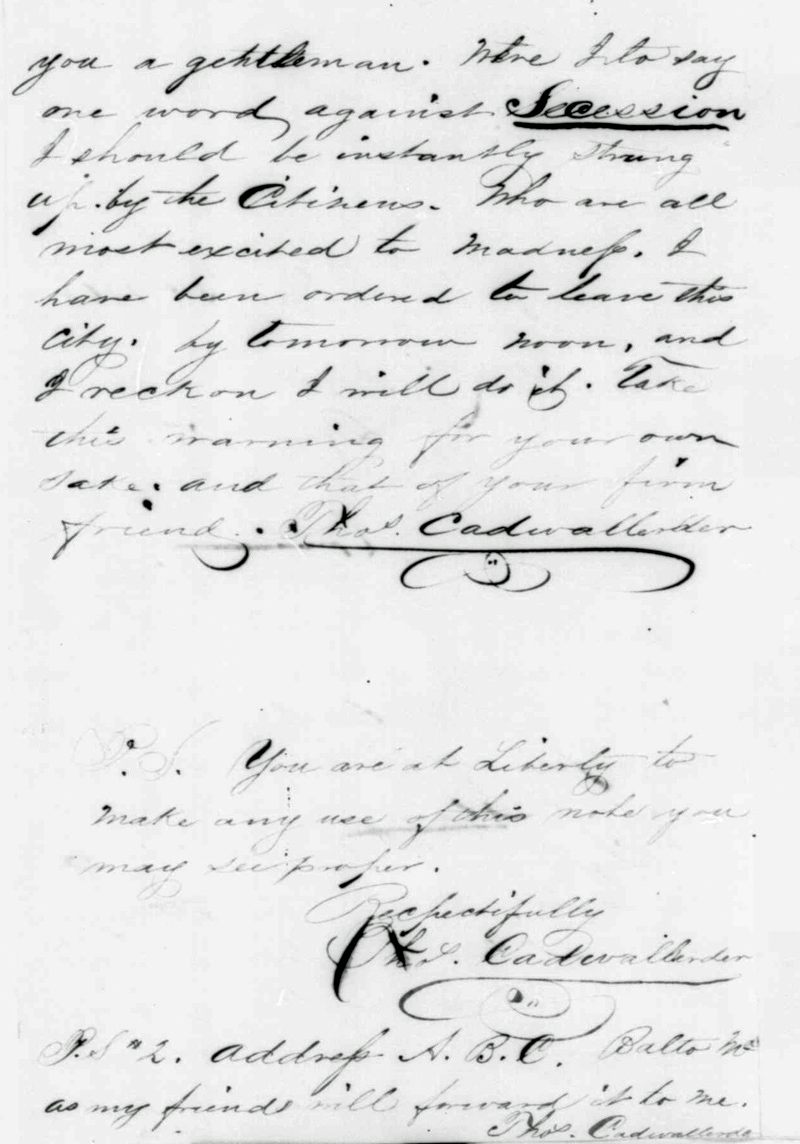 you a gentleman. Were I to say
one word, against Secession
I should be instantly strung
up. by the Citizens. Who are all
most excited to Madness. I
have been ordered to leave this
city. by tomorrow noon, and
I reckon I will do it. Take
this warning for your own
sake. and that of your firm
friend. Thos. Cadwallerder
P.S. You are at Liberty to
make any use of this note you
may see proper.
Respectifully
Thos. Cadwallerder
P.S" 2. Address A. B. C. Balto Md
as my friends will forward it to me.
Thos. Cadwallerder